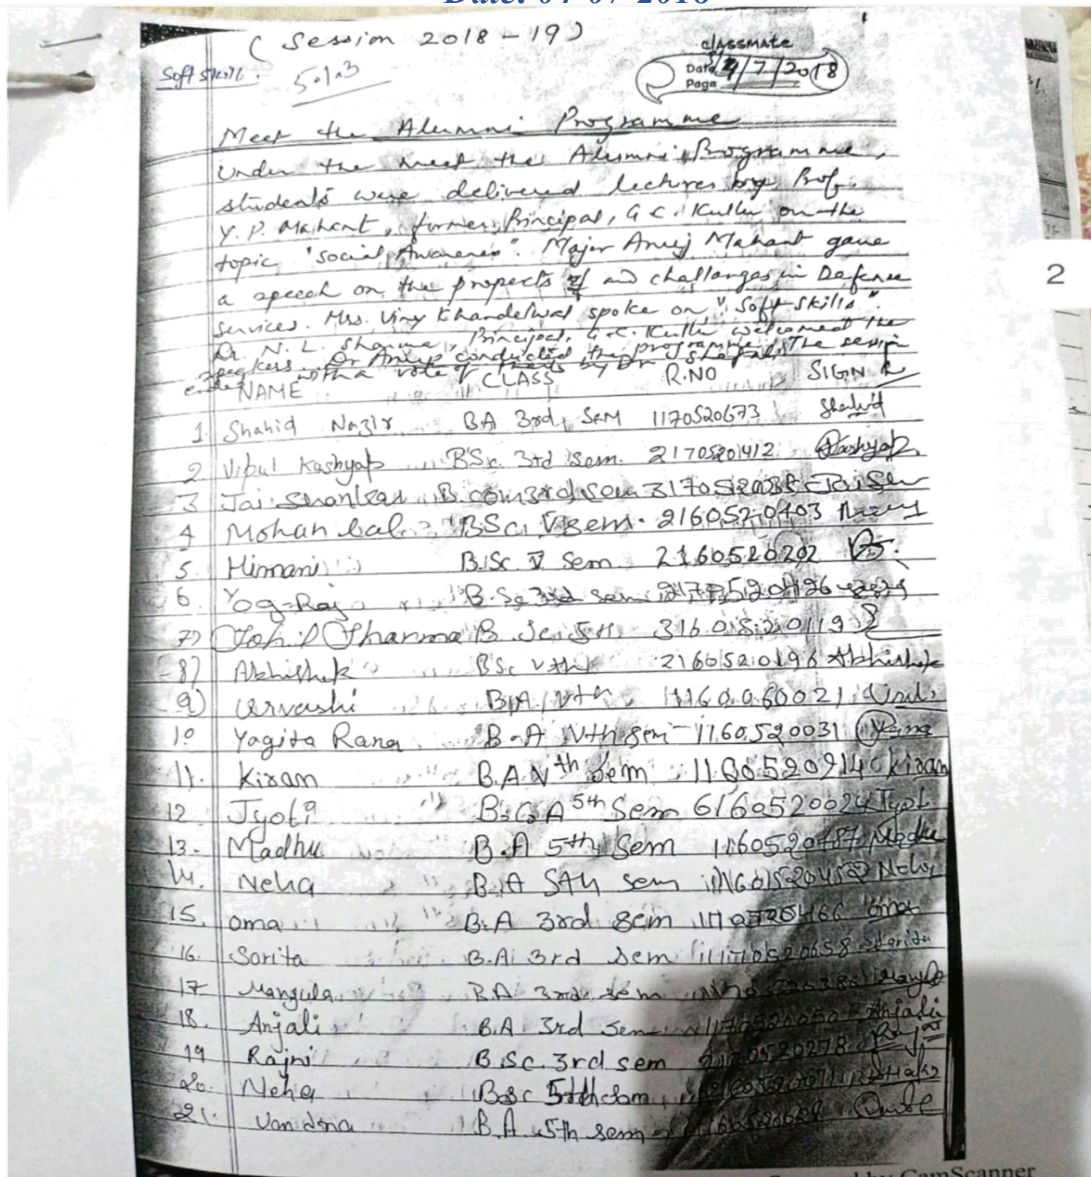 Date: 04-07-2018
(Session 2018-19)
classmate
Soft skill.
5.1.3
Date 4/7/2018
Page
Meet the Alumni Programme
Under the Meet the Alumni Programme,
students were delivered lectures by Prof.
Y.P. Mahant, former Principal, G.C. Kullu on the
topic "Social Awareness". Major Anuj Mahant gave
a speech on the propects of and challanges in Defence
services. Mrs. Viny Khandelwal spoke on "Soft skills".
Dr. N.L. Sharma, Principal, G.C. Kullu welcomed the
speakers. Dr Anup conducted the programme. The session
ended with a vote of thanks by Dr
NAME CLASS R.NO SIGN
1. Shahid Nazir BA 3rd SEM 1170520673 Shahid
2 Vipul Kashyap BSc. 3rd Sem. 2170520412 Kashyap
3 Jai Shankar B.com 3rd sem
4 Mohan Lal BSc. V sem. 2160520403
5. Himani B.Sc V Sem 2160520202
6. Yog Raj B.Sc 3rd sem
7) Sharma B.Sc. 5th 3160520119
8) Abhishek BSc Vth 2160520196 Abhishek
9) Urvashi B.A Vth
10 Yagita Rana B.A Vth sem 1160520031
11. Kiran B.A Vth Sem 1160520914 Kiran
12 Jyoti B.C.A 5th Sem 6160520024 Jyoti
13. Madhu B.A 5th Sem 1160520487 Madhu
14. Neha B.A 5th sem Neha
15. oma B.A 3rd sem oma
16. Sarita B.A 3rd sem Sarita
17 Mangula B.A 3rd sem
18. Anjali B.A 3rd sem Anjali
19 Rajni B.Sc. 3rd sem 2170520278
20. Neha B.Sc 5th
21. Vandna B.A 5th sem
2
by CamScanner